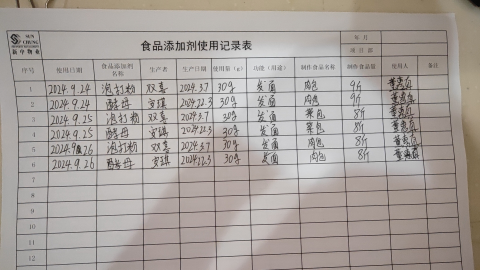 SUN CHUNG
新中物业
食品添加剂使用记录表
年 月
项目部
序号 使用日期 食品添加剂名称 生产者 生产日期 使用量(g) 功能(用途) 制作食品名称 制作食品量 使用人 备注
1 2024.9.24 泡打粉 双喜 2024.3.7 30g 发面 肉包 9斤
2 2024.9.24 酵母 安琪 2024.2.3 30g 发面 肉包 9斤
3 2024.9.25 泡打粉 双喜 2024.3.7 30g 发面 菜包 8斤
4 2024.9.25 酵母 安琪 2024.2.3 30g 发面 菜包 8斤
5 2024.9.26 泡打粉 双喜 2024.3.7 30g 发面 肉包 8斤
6 2024.9.26 酵母 安琪 2024.2.3 30g 发面 肉包 8斤
7
8
9
10
11
12